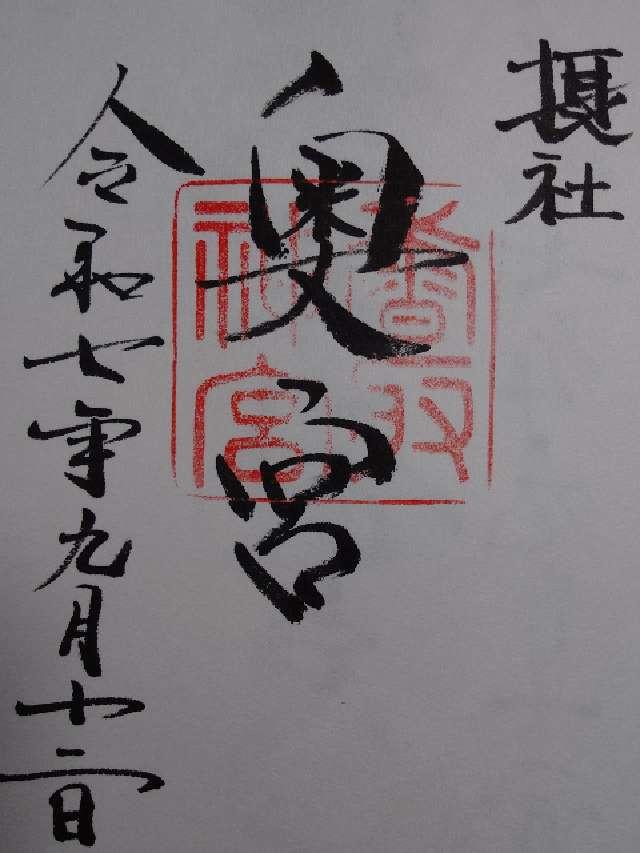 摂社
奥宮
香取
神宮
令和七年九月十二日